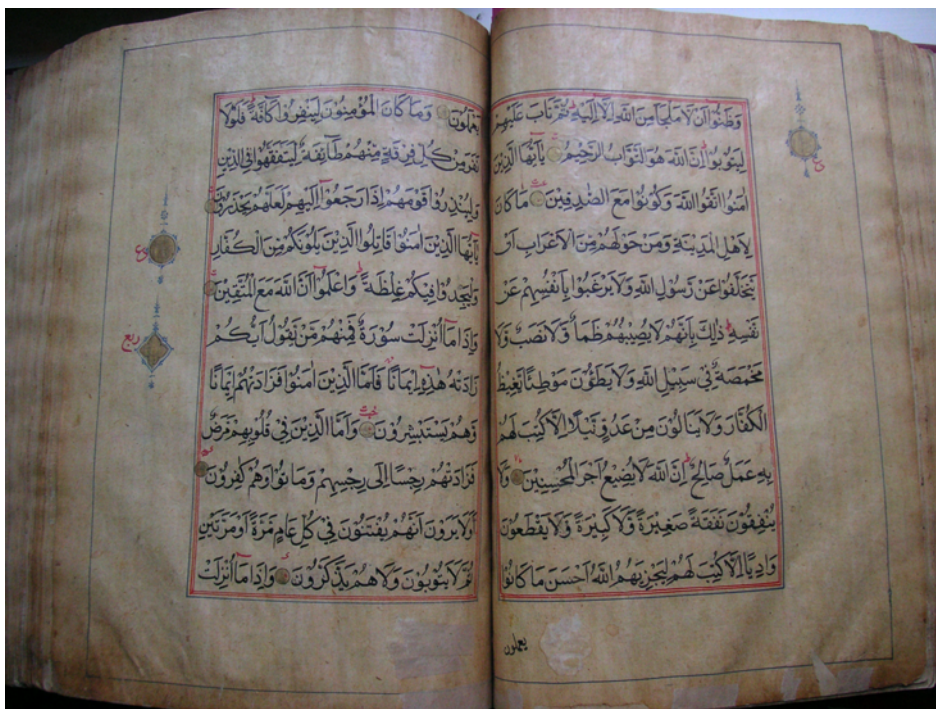 وَظَنُّوْۤا اَنْ لَّا مَلْجَاَ مِنَ اللّٰهِ اِلَّاۤ اِلَيْهِ ؕ ثُمَّ تَابَ عَلَيْهِمْ
لِيَتُوْبُوْا ؕ اِنَّ اللّٰهَ هُوَ التَّوَّابُ الرَّحِيْمُ يٰۤاَيُّهَا الَّذِيْنَ
اٰمَنُوا اتَّقُوا اللّٰهَ وَكُوْنُوْا مَعَ الصّٰدِقِيْنَ مَا كَانَ
لِاَهْلِ الْمَدِيْنَةِ وَمَنْ حَوْلَهُمْ مِّنَ الْاَعْرَابِ اَنْ
يَّتَخَلَّفُوْا عَنْ رَّسُوْلِ اللّٰهِ وَلَا يَرْغَبُوْا بِاَنْفُسِهِمْ عَنْ
نَّفْسِهٖ ؕ ذٰلِكَ بِاَنَّهُمْ لَا يُصِيْبُهُمْ ظَمَاٌ وَّلَا نَصَبٌ وَّلَا
مَخْمَصَةٌ فِيْ سَبِيْلِ اللّٰهِ وَلَا يَطَـُٔوْنَ مَوْطِئًا يَّغِيْظُ
الْكُفَّارَ وَلَا يَنَالُوْنَ مِنْ عَدُوٍّ نَّيْلًا اِلَّا كُتِبَ لَهُمْ
بِهٖ عَمَلٌ صَالِحٌ ؕ اِنَّ اللّٰهَ لَا يُضِيْعُ اَجْرَ الْمُحْسِنِيْنَ وَلَا
يُنْفِقُوْنَ نَفَقَةً صَغِيْرَةً وَّلَا كَبِيْرَةً وَّلَا يَقْطَعُوْنَ
وَادِيًا اِلَّا كُتِبَ لَهُمْ لِيَجْزِيَهُمُ اللّٰهُ اَحْسَنَ مَا كَانُوْا
يعملون
ع
يَعْمَلُوْنَ وَمَا كَانَ الْمُؤْمِنُوْنَ لِيَنْفِرُوْا كَآفَّةً ؕ فَلَوْلَا
نَفَرَ مِنْ كُلِّ فِرْقَةٍ مِّنْهُمْ طَآئِفَةٌ لِّيَتَفَقَّهُوْا فِي الدِّيْنِ
وَلِيُنْذِرُوْا قَوْمَهُمْ اِذَا رَجَعُوْۤا اِلَيْهِمْ لَعَلَّهُمْ يَحْذَرُوْنَ
يٰۤاَيُّهَا الَّذِيْنَ اٰمَنُوْا قَاتِلُوا الَّذِيْنَ يَلُوْنَكُمْ مِّنَ الْكُفَّارِ
وَلْيَجِدُوْا فِيْكُمْ غِلْظَةً ؕ وَاعْلَمُوْۤا اَنَّ اللّٰهَ مَعَ الْمُتَّقِيْنَ
وَاِذَا مَاۤ اُنْزِلَتْ سُوْرَةٌ فَمِنْهُمْ مَّنْ يَّقُوْلُ اَيُّكُمْ
زَادَتْهُ هٰذِهٖۤ اِيْمَانًا فَاَمَّا الَّذِيْنَ اٰمَنُوْا فَزَادَتْهُمْ اِيْمَانًا
وَّهُمْ يَسْتَبْشِرُوْنَ وَاَمَّا الَّذِيْنَ فِيْ قُلُوْبِهِمْ مَّرَضٌ
فَزَادَتْهُمْ رِجْسًا اِلٰى رِجْسِهِمْ وَمَاتُوْا وَهُمْ كٰفِرُوْنَ
اَوَلَا يَرَوْنَ اَنَّهُمْ يُفْتَنُوْنَ فِيْ كُلِّ عَامٍ مَّرَّةً اَوْ مَرَّتَيْنِ
ثُمَّ لَا يَتُوْبُوْنَ وَلَا هُمْ يَذَّكَّرُوْنَ وَاِذَا مَاۤ اُنْزِلَتْ
ع
ربع